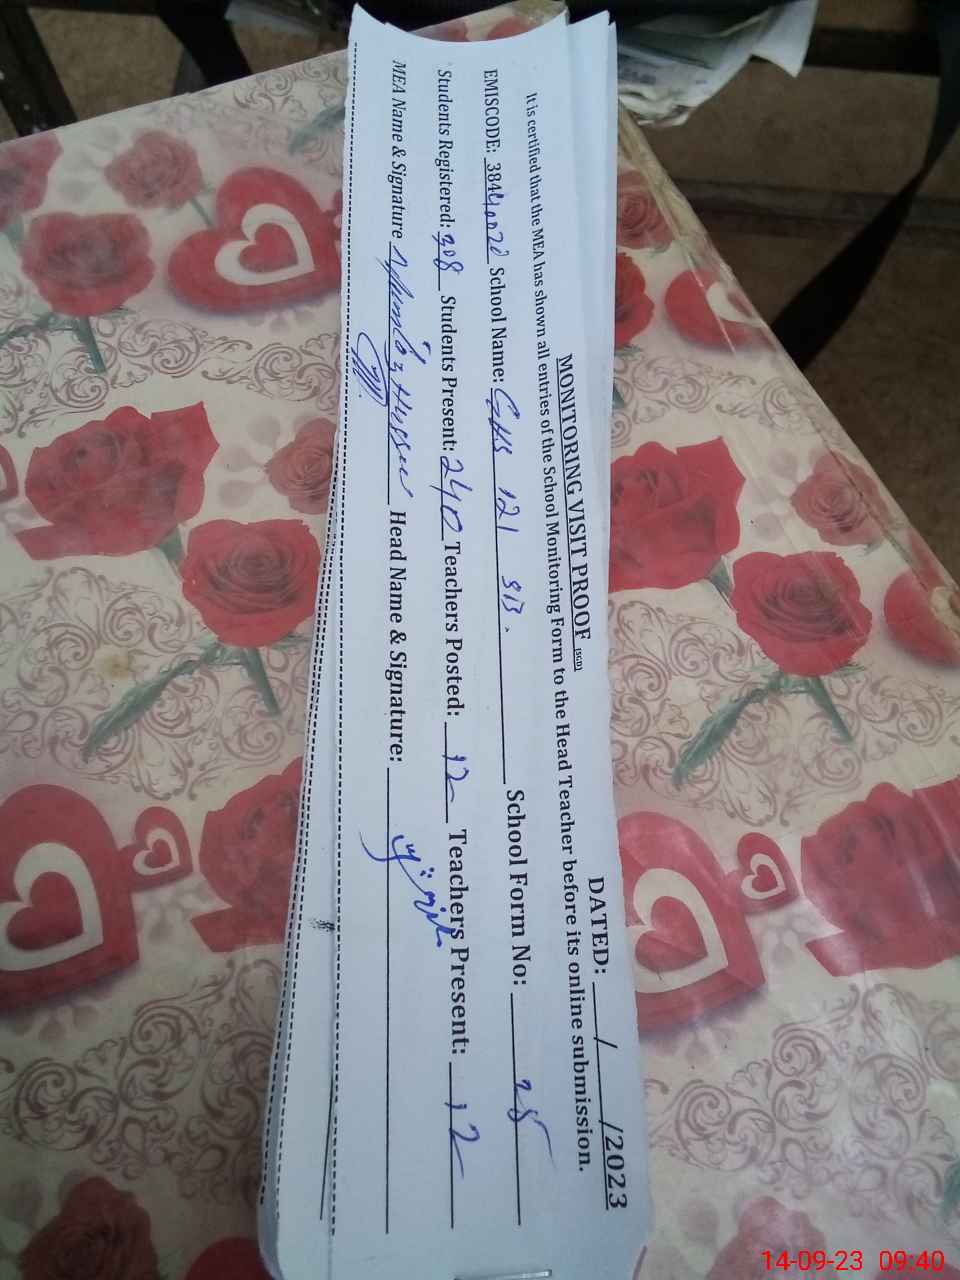 MONITORING VISIT PROOF [SCD] DATED: ___/___/2023
It is certified that the MEA has shown all entries of the School Monitoring Form to the Head Teacher before its online submission.
EMISCODE: School Name: GHS 121 SB. School Form No: 25
Students Registered: 308 Students Present: 240 Teachers Posted: 12 Teachers Present: 12
MEA Name & Signature Head Name & Signature:
14-09-23 09:40